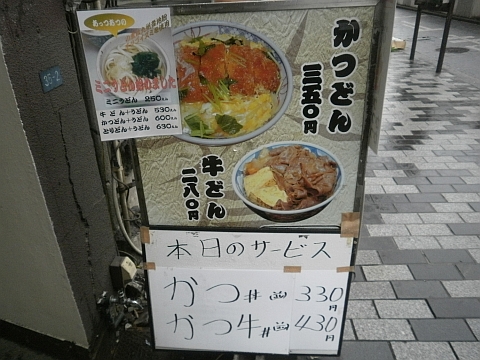 あっつあつの
ミニうどん始めました!
ミニうどん 250えん
牛どん+うどん 530えん
かつどん+うどん 600えん
とりどん+うどん 630えん
かつどん
三五〇円
牛どん
二八〇円
本日のサービス
かつ丼 330円
かつ牛丼 430円